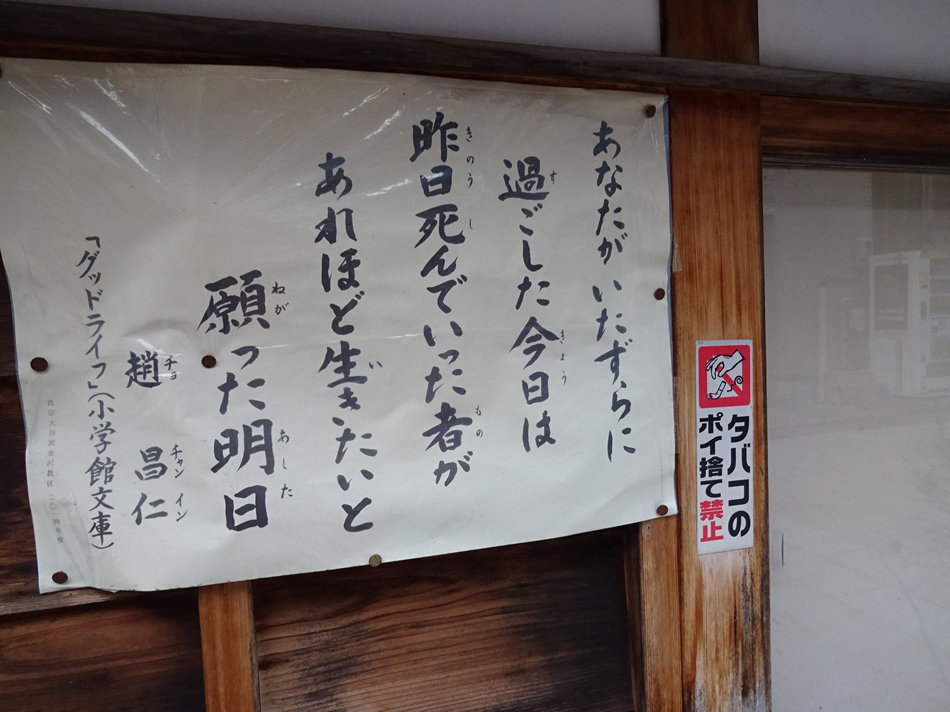 あなたがいたずらに
過ごした今日は
昨日死んでいった者が
あれほど生きたいと
願った明日
趙 昌仁
「グッドライフ」(小学館文庫)
タバコの
ポイ捨て禁止